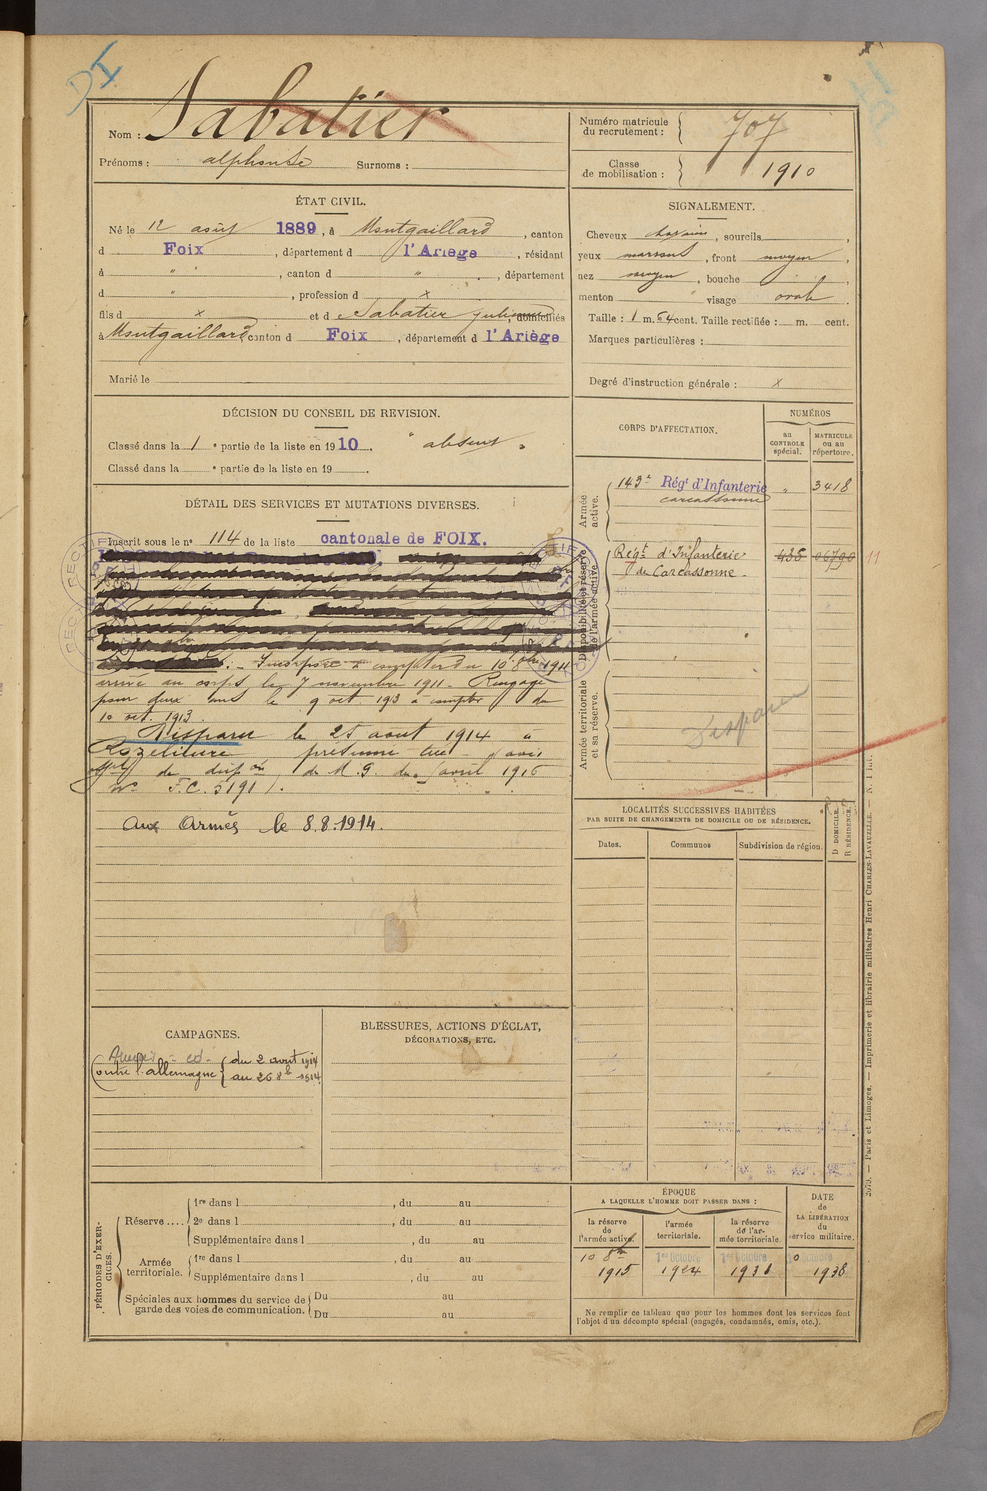 DI
Nom : Sabatier
Prénoms : alphonse Surnoms :
Numéro matricule du recrutement : 707
Classe de mobilisation : 1910
ÉTAT CIVIL.
Né le 12 août 1889, à Montgaillard, canton
d Foix, département d l'Ariège, résidant
à " , canton d " , département
d " , profession d x
fils d x et d Sabatier domiciliés
à Montgaillard canton d Foix, département d l'Ariège
Marié le
SIGNALEMENT.
Cheveux , sourcils ,
yeux marrons , front moyen ,
nez moyen , bouche ,
menton visage ovale .
Taille : 1 m. 64 cent. Taille rectifiée : m. cent.
Marques particulières :
Degré d'instruction générale : x
DÉCISION DU CONSEIL DE REVISION.
Classé dans la 1 e partie de la liste en 1910. " absent "
Classé dans la e partie de la liste en 19 .
DÉTAIL DES SERVICES ET MUTATIONS DIVERSES.
Inscrit sous le n° 114 de la liste cantonale de FOIX.
Incorporé à compter du 10 8bre 1911
arrivé au corps le 7 novembre 1911. Rengagé
pour deux ans le 9 oct. 193 à compter du
10 oct. 1913.
Disparu le 25 aout 1914 à
Rozelieure présumé tué avis
de M. G. du avril 1916
N° F.C. 5191).
Aux Armés le 8.8.1914.
CORPS D'AFFECTATION.
NUMÉROS
au CONTROLE spécial.
MATRICULE ou au répertoire.
Armée active.
143e Régt d'Infanterie " 3418
Carcassonne
Disponibilité et réserve de l'armée active.
Régt d'Infanterie 435 11
de Carcassonne
Armée territoriale et sa réserve.
Disparu
LOCALITÉS SUCCESSIVES HABITÉES
PAR SUITE DE CHANGEMENTS DE DOMICILE OU DE RÉSIDENCE.
Dates.
Communes
Subdivision de région.
D DOMICILE.
R RÉSIDENCE.
CAMPAGNES.
Contre l'allemagne { du 2 aout 1914
au 26 8bre 1914
BLESSURES, ACTIONS D'ÉCLAT,
DÉCORATIONS, ETC.
PÉRIODES D'EXERCICES.
Réserve .... 1re dans l , du au
2e dans l , du au
Supplémentaire dans l , du au
Armée territoriale. 1re dans l , du au
Supplémentaire dans l , du au
Spéciales aux hommes du service de garde des voies de communication. Du au
Du au
ÉPOQUE
A LAQUELLE L'HOMME DOIT PASSER DANS :
la réserve de l'armée active.
l'armée territoriale.
la réserve de l'armée territoriale.
DATE de LA LIBÉRATION du service militaire.
10 8bre 1er Octobre 1er Octobre
1915 1924 1938
Ne remplir ce tableau que pour les hommes dont les services font
l'objet d'un décompte spécial (engagés, condamnés, omis, etc.).
Paris et Limoges. — Imprimerie et librairie militaires Henri CHARLES-LAVAUZELLE.